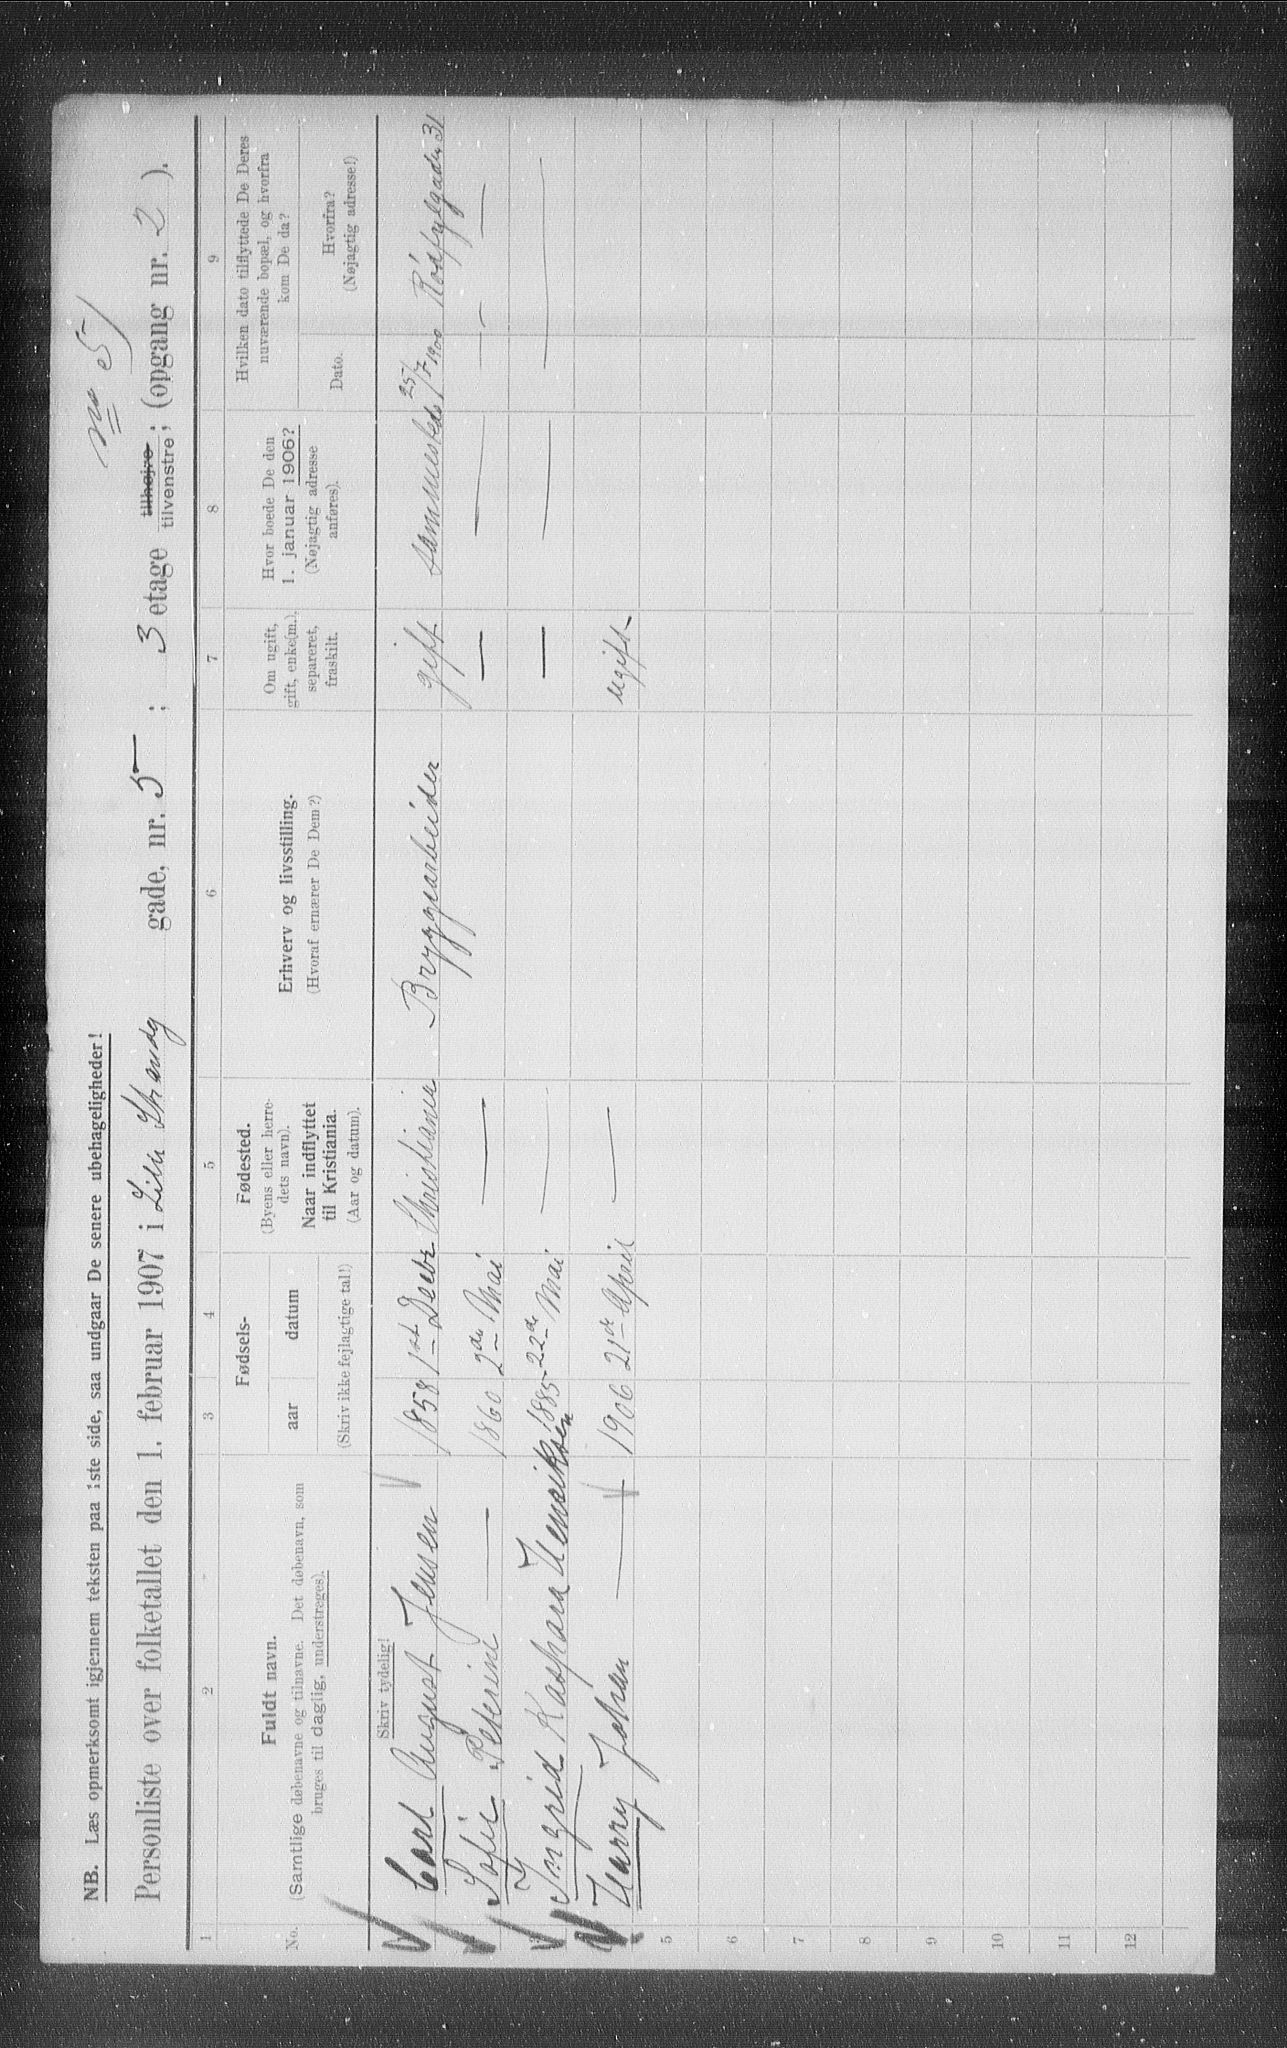 No 5
NB. Læs opmerksomt igjennem teksten paa 1ste side, saa undgaar De senere ubehageligheder!
Personliste over folketallet den 1. februar 1907 i Lille Strand gade, nr. 5 ; 3 etage tilhøjre tilvenstre ; (opgang nr. 2 ).
1 2 3 4 5 6 7 8 9
No.
Fuldt navn.
(Samtlige døbenavne og tilnavne. Det døbenavn, som
bruges til daglig, understreges).
Fødsels-
aar datum
(Skriv ikke fejlagtige tal!)
Fødested.
(Byens eller herre-
dets navn).
Naar indflyttet
til Kristiania.
(Aar og datum).
Erhverv og livsstilling.
(Hvoraf ernærer De Dem?)
Om ugift,
gift, enke(m.),
separeret,
fraskilt.
Hvor boede De den
1. januar 1906?
(Nøjagtig adresse
anføres).
Hvilken dato tilflyttede De Deres
nuværende bopæl, og hvorfra
kom De da?
Dato.
Hvorfra?
(Nøjagtig adresse!)
Skriv tydelig!
Carl August Jensen 1858 1st Decbr Christiania Bryggearbeider gift sammesteds 25/7 1900 Rödfylgaden 31
Sofie Petrine — 1860 2de Mai — — — — —
3 Ingrid Kaspara Henriksen 1885 22de Mai — — — —
Harry Johan — 1906 21de April — ugift
5
6
7
8
9
10
11
12